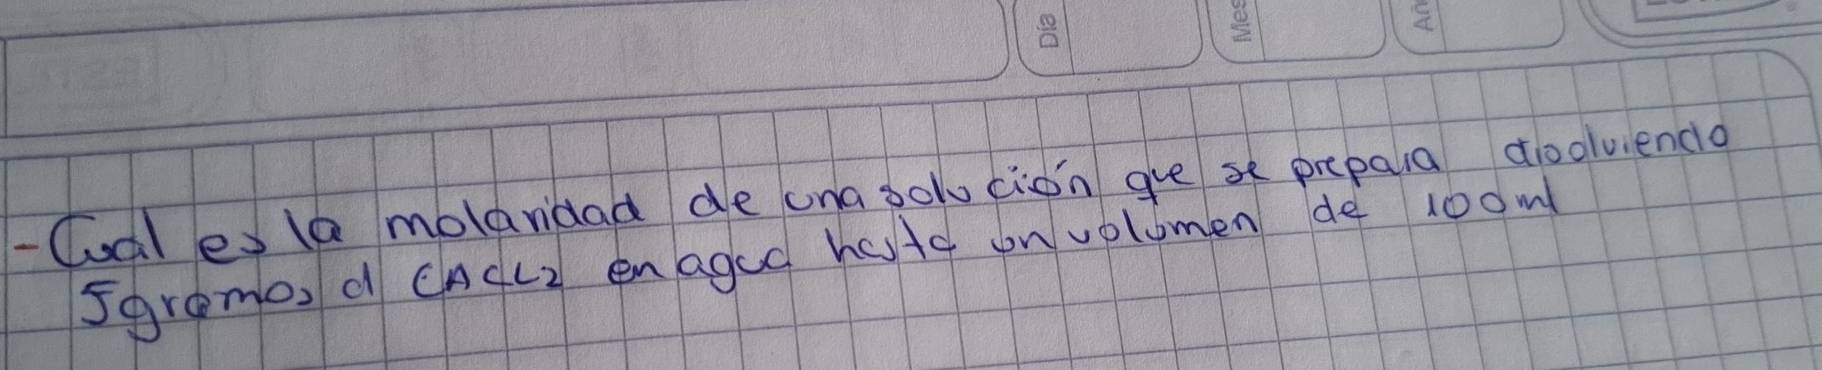 Día
Mes
Añ
- Cual es la molaridad de una solución que se prepara disolviendo
5gramos d CACL2 en agua hasta un volumen de 100ml